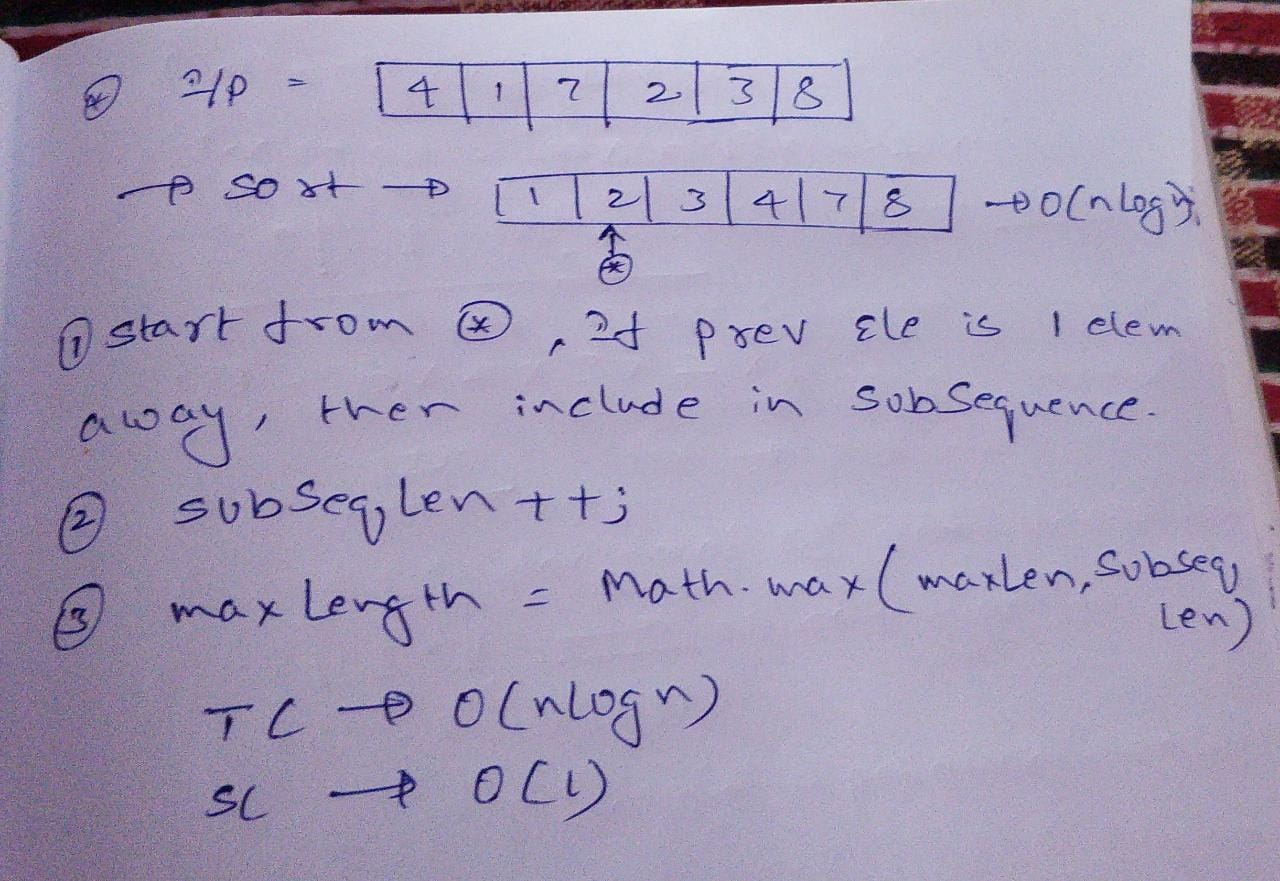 ⊛ I/P = 4 1 7 2 3 8
→ sort → 1 2 3 4 7 8 → O(nlogn);
⊛
① start from ⊛, If prev Ele is 1 elem
away, then include in SubSequence.
② subSeqLen++;
③ maxLength = Math.max(maxLen, Subseq
Len)
TC → O(nlogn)
SC → O(1)